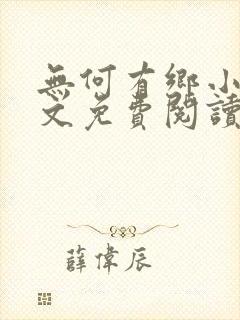 無何有鄉小
文免費閱讀
薛偉辰